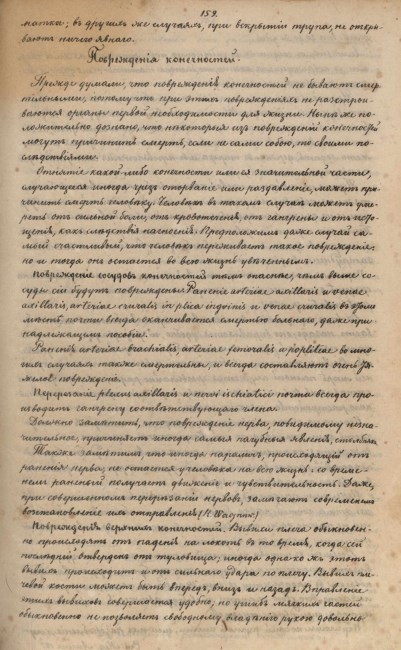 159.
матка; въ другихъ же случаяхъ, при вскрытіи трупа, не откры-
ваютъ ничего явнаго.
Поврежденія конечностей.
Прежде думали, что поврежденія конечностей не бываютъ смер-
тельными, потому что при этихъ поврежденіяхъ не разстрои-
ваются органы первой необходимости для жизни. Нынѣ же по-
ложительно дознано, что некоторыя изъ поврежденій конечностей
могутъ причинить смерть, если не сами собою, то своими по-
слѣдствіями.
Отнятіе какой либо конечности или ея значительной части,
случающееся иногда чрезъ оторваніе или раздавленіе, можетъ при-
чинить смерть человѣку. Человѣкъ въ такомъ случаѣ можетъ уме-
реть отъ сильной боли, отъ кровотеченія, отъ гангрены и отъ исто-
щенія, какъ слѣдствія нагноенія. Предположимъ даже случай са-
мый счастливый, что человѣкъ переживаетъ такое поврежденіе:
но и тогда онъ остается во всю жизнь увѣченнымъ.
Поврежденіе сосудовъ конечностей тѣмъ опаснѣе, чѣмъ выше со-
суды сіи будутъ повреждены. Раненіе arteriae axillaris и venae
axillaris, arteriae cruralis in plica inguinis и venae cruralis въ этомъ
мѣстѣ почти всегда оканчивается смертью больнаго, даже при
надлежащемъ пособіи.
Раненіе arteriae brachialis, arteriae femoralis и popliteae во мно-
гихъ случаяхъ также смертельны, и всегда составляютъ очень тя-
желое поврежденіе.
Перерѣзаніе plexus axillaris и nervi ischiatici почти всегда про-
изводитъ гангрену соотвѣтствующаго члена.
Должно замѣтить, что поврежденіе нерва, повидимому незна-
чительное, причиняетъ иногда самыя пагубныя явленія,
Также замѣтимъ что иногда параличъ, происходящій отъ
раненія нерва, не остается у человѣка на всю жизнь: со време-
немъ раненый получаетъ движеніе и чувствительность. Даже,
при совершенномъ перерѣзаніи нервовъ, замѣчаютъ современемъ
возстановленіе ихъ отправленія
Поврежденія верхнихъ конечностей. Вывихи плеча обыкновен-
но происходятъ отъ паденія на локоть въ то время, когда сей
послѣдній отведенъ отъ туловища; иногда однако жъ этотъ
вывихъ происходитъ и отъ сильнаго удара по плечу. Вывихъ пле-
чевой кости можетъ быть впередъ, внизъ и назадъ. Вправленіе
этихъ вывиховъ совершается удобно; но ушибъ мягкихъ частей
обыкновенно не позволяетъ свободному владѣнію рукою довольно